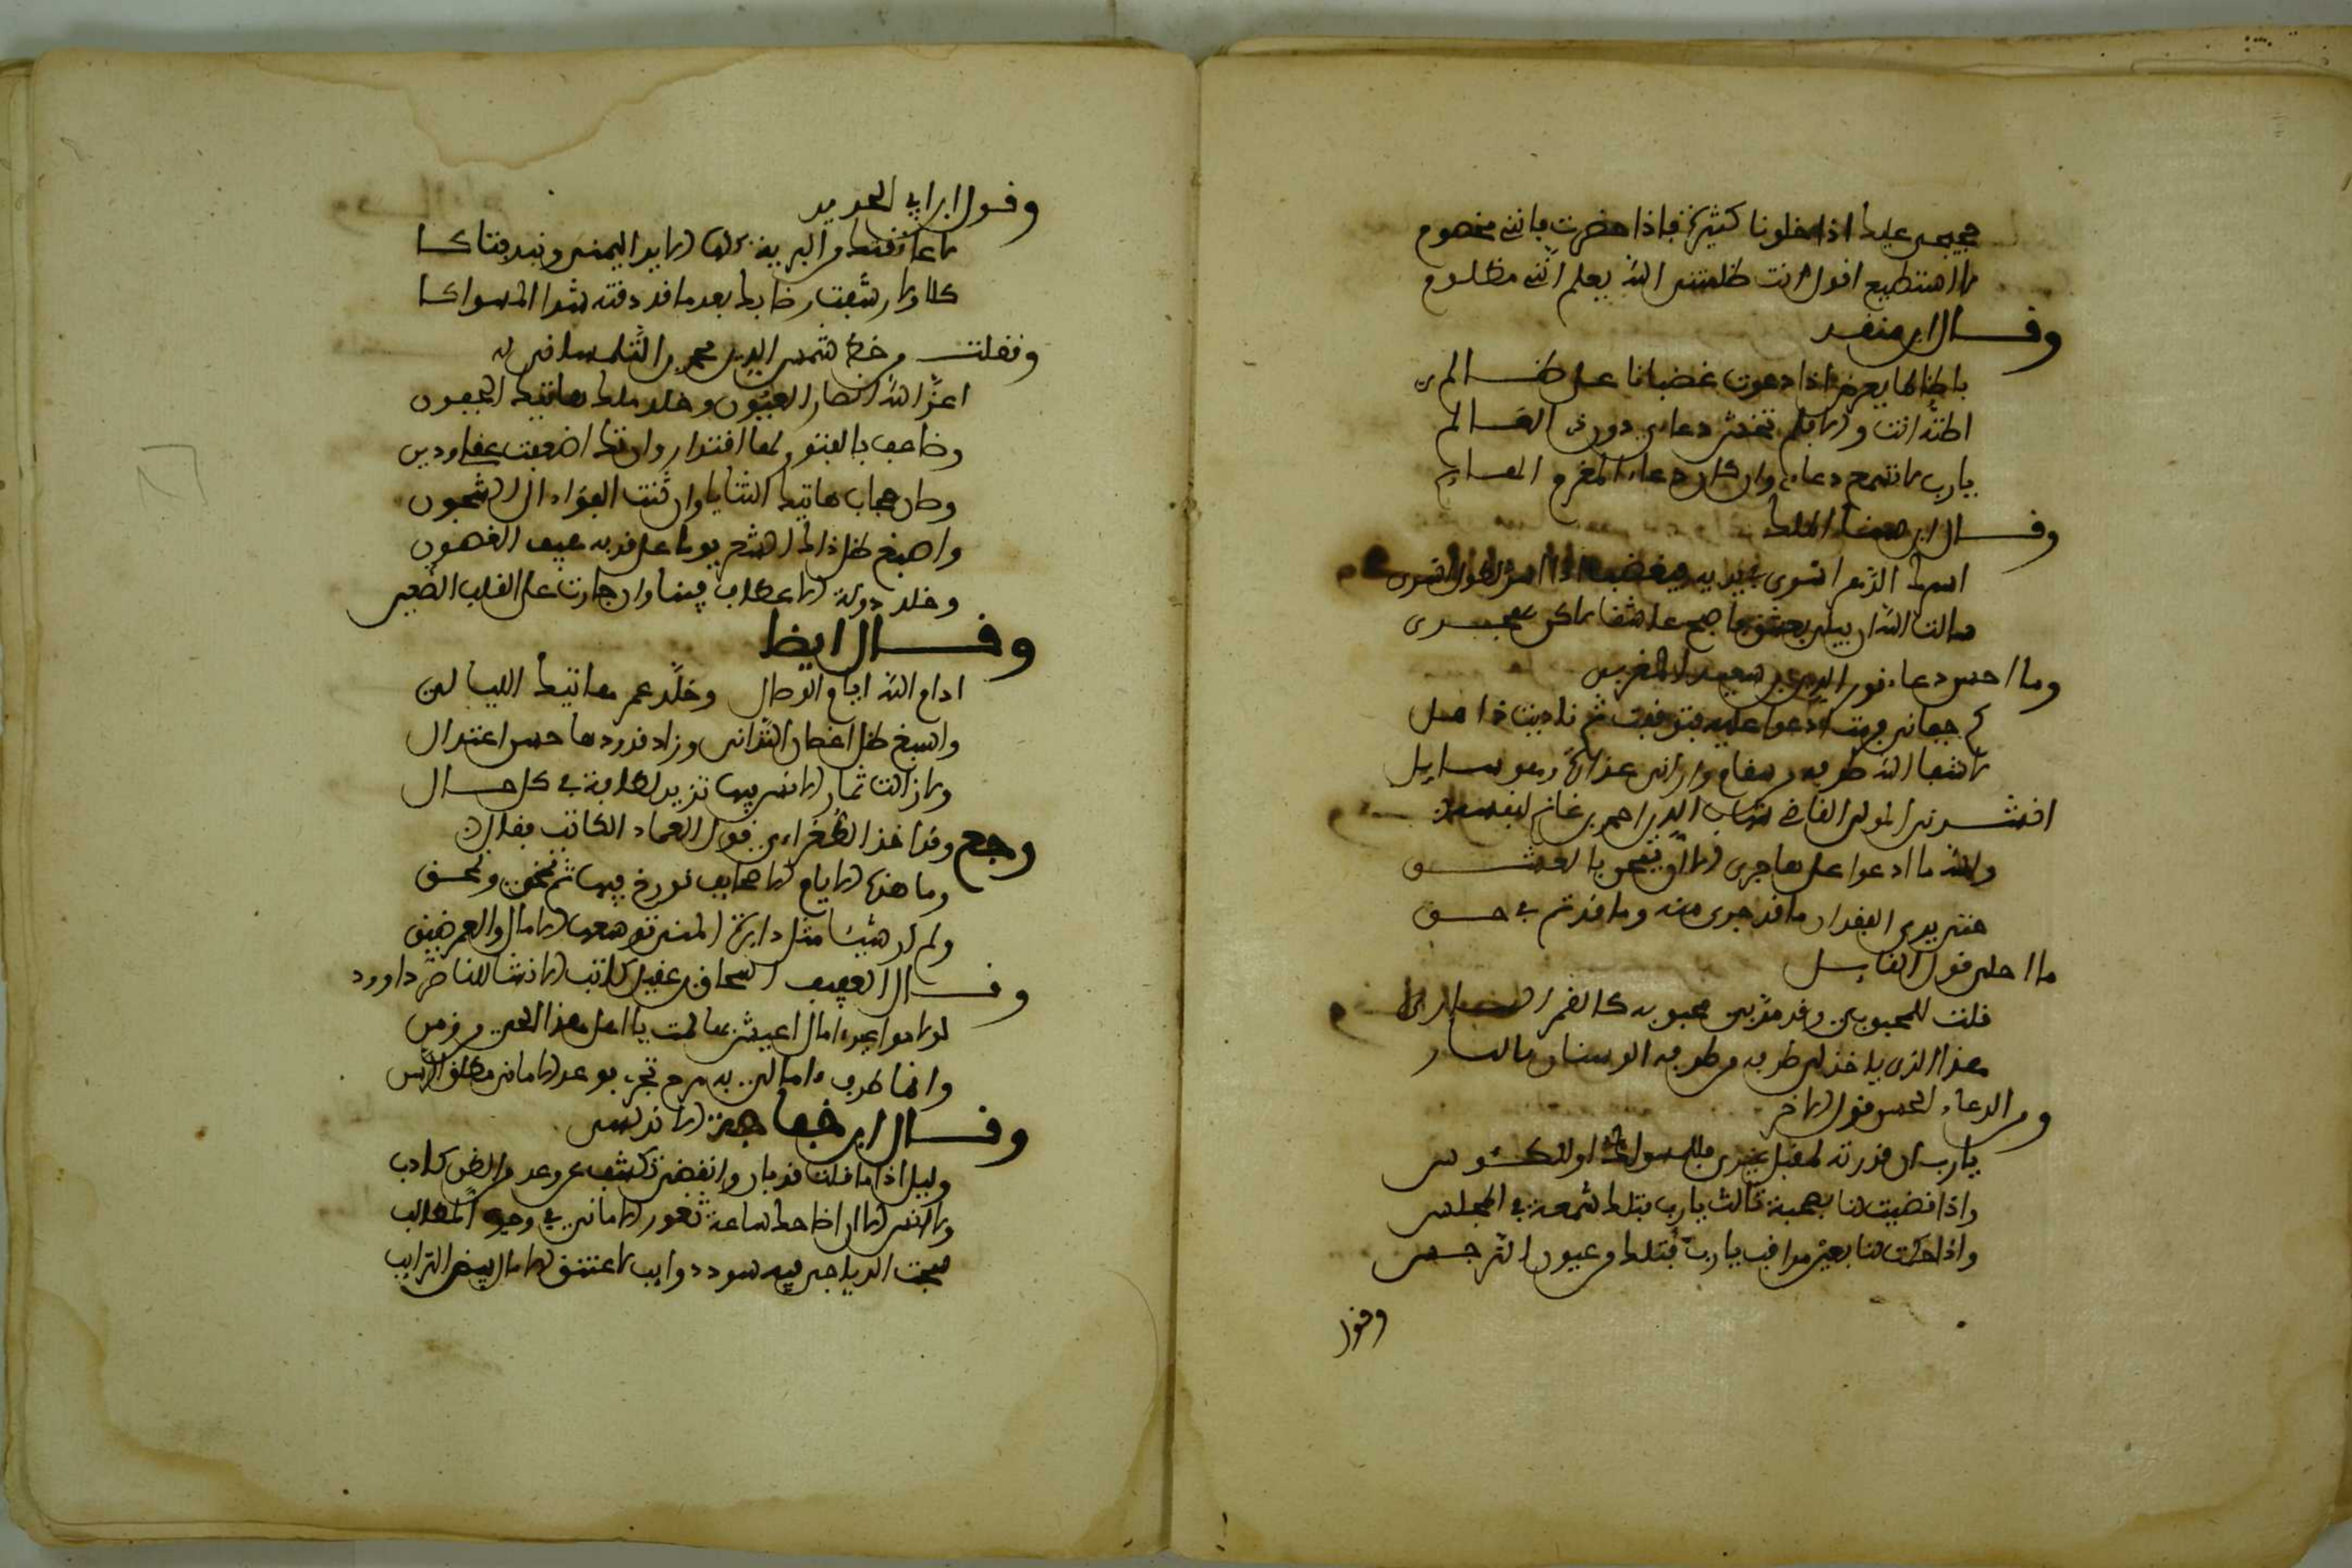 حججي عليك اذا خلونا كثيرة فاذا حضرت فانني مخصوم
لا استطيع اقول انت ظلمتني الله يعلم انني مظلوم
وقال ابن منقذ
يا ظالما يعرض اذا دعوت غضبانا على ظالمي
اظنه انت والا فلم تخشى دعائي دون ذا العالم
يارب لا تسمع دعائي وان كان دعاء المغرم الهايم
وقال ابن سناء الملك
سالت الله ان يبلى بعشق
وما احسن دعاء نور الدين بن سعيد المغربي
كم جفاني فرمت ادعو عليه فتوقفت ثم ناديت قايل
لا شفا الله طرفه من سقام واراني عذاره وهو سايل
انشدني المولى القاضي شهاب الدين احمد بن غانم لنفسه
والله ما ادعو على هاجري الا لان يمحن بالعشق
حتى يرى مقدار ما قد جرى منه وما قد تم في حق
ما احلى قول القايل
قلت للمحبوب وقد مر بي محبوبه كالقمر الساري
هذا الذي ياخذ لي طرفه من طرفه الوسنان بالثار
ومن الدعاء الحسن قول الاخر
يارب ان قدرته لمقبل غيري فللمسواك او للكوس
واذا قضيت لنا بصحبة ثالث يارب فلتك شمعة في المجلس
واذا حكمت لنا بعين مراقب يارب فلتك من عيون النرجس
وقول
وقول ابن ابي الحديد
لا عانقتك من البرية كلها الا يد اليمنى وبند قباكا
كلا ولا رشفت رضابك بعد ما قد ذقته شفة المسواكا
ونقلت من خط شمس الدين محمد بن التلمساني له
اعز الله انصار العيون وخلد ملك هاتيك الجفون
وضاعف بالفتور لها اقتدارا وان تك اضعفت عقلي وديني
وصان حجاب هاتيك الثنايا وان ثنت الفؤاد الى الشجون
واسبغ ظل ذاك الشعر يوما على قد به هيف الغصون
وخلد دولة الاعطاف فينا وان جارت على القلب الطعين
وقال ايضا
ادام الله ايام الوصال وخلد عمر هاتيك الليالي
واسبغ ظل اغصان التداني وزاد قدودها حسن اعتدال
ولا زالت ثمار الانس فيها تزيد لطافة في كل حال
رجع وقد اخذ الطغراءي قول العماد الكاتب فقال
وما هذه الايام الا صحايف نورخ فيها ثم تمحى وتمحق
ولم ار شيئا مثل دايرة المنى توسعها الامال والعمر ضيق
وقال العفيف اسحاق بن عقيل كاتب الانشا للناصر داوود
لولا مواعيد امال اعيش بها لمت يا اهل هذا الحي من زمن
وانما طرف امالي به مرح يجري بوعد الاماني مطلق الرسن
وقال ابن خفاجة الاندلسي
وليل اذا ما قلت قد باد وانقضى تكشف عن وعد من الظن كاذب
ولا انس الا ان اضاحك ساعة ثغور الاماني في وجوه المطالب
سحبت الدياجي فيه سود ذوايب لاعتنق الامال بيض الترايب